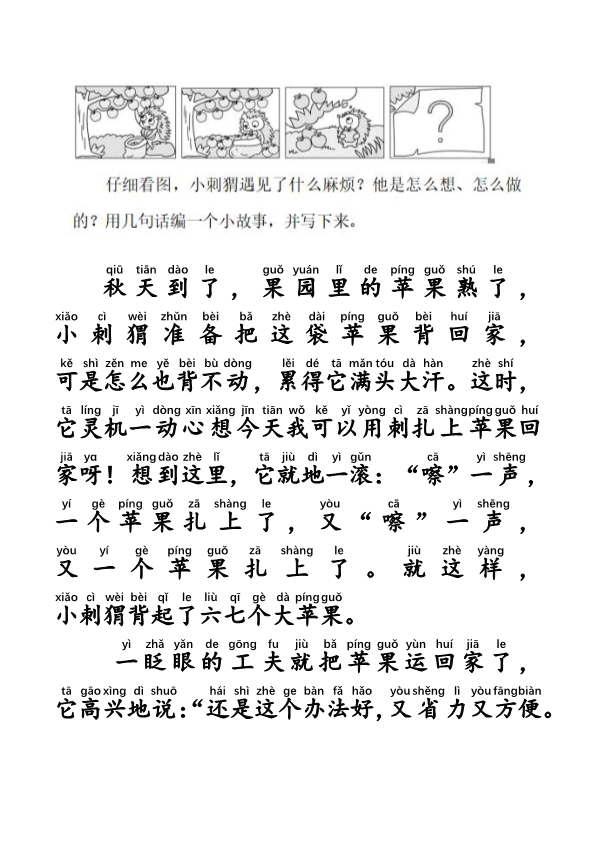 ?
仔细看图，小刺猬遇见了什么麻烦？他是怎么想、怎么做
的？用几句话编一个小故事，并写下来。
qiū tiān dào le guǒ yuán lǐ de píng guǒ shú le
秋天到了，果园里的苹果熟了，
xiǎo cì wèi zhǔn bèi bǎ zhè dài píng guǒ bèi huí jiā
小刺猬准备把这袋苹果背回家，
kě shì zěn me yě bèi bù dòng lěi dé tā mǎn tóu dà hàn zhè shí
可是怎么也背不动，累得它满头大汗。这时，
tā líng jī yì dòng xīn xiǎng jīn tiān wǒ kě yǐ yòng cì zā shàng píng guǒ huí
它灵机一动心想今天我可以用刺扎上苹果回
jiā ya xiǎng dào zhè lǐ tā jiù dì yì gǔn cā yì shēng
家呀！想到这里，它就地一滚：“嚓”一声，
yí gè píng guǒ zā shàng le yòu cā yì shēng
一个苹果扎上了，又“嚓”一声，
yòu yí gè píng guǒ zā shàng le jiù zhè yàng
又一个苹果扎上了。就这样，
xiǎo cì wèi bèi qǐ le liù qī gè dà píng guǒ
小刺猬背起了六七个大苹果。
yì zhǎ yǎn de gōng fu jiù bǎ píng guǒ yùn huí jiā le
一眨眼的工夫就把苹果运回家了，
tā gāo xìng dì shuō hái shì zhè ge bàn fǎ hǎo yòu shěng lì yòu fāng biàn
它高兴地说：“还是这个办法好，又省力又方便。